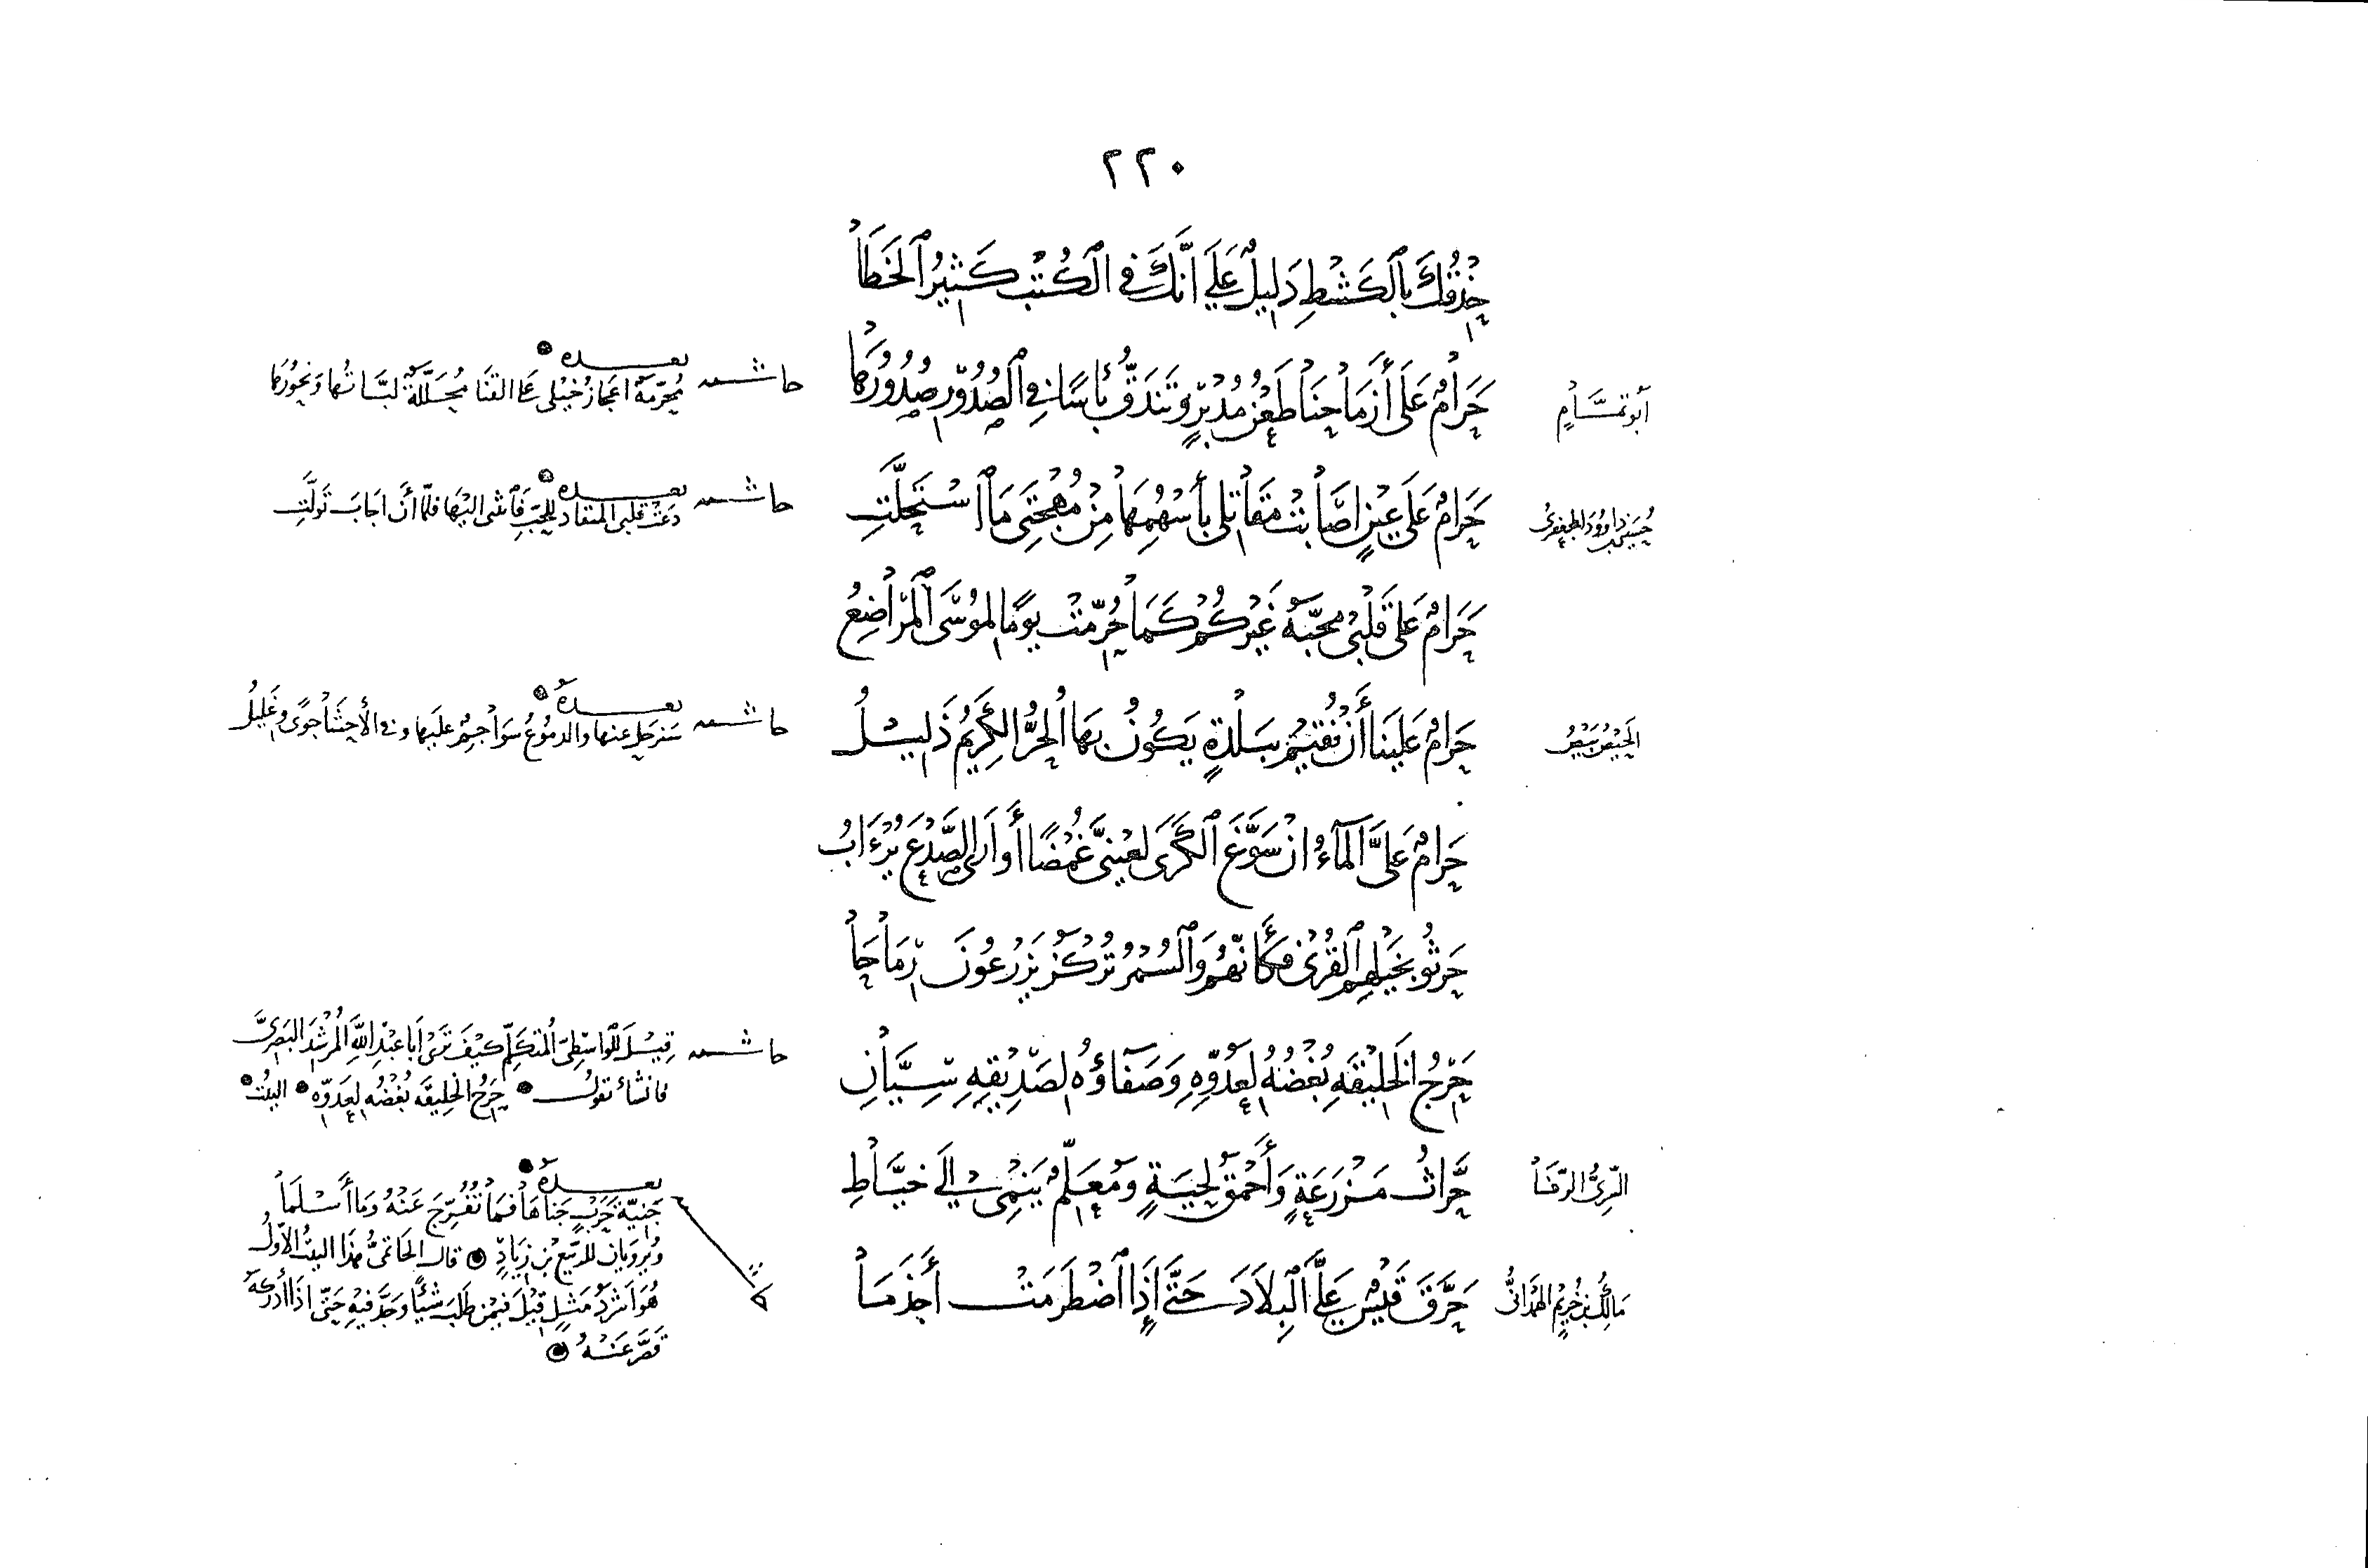 ٢٢٠
حِذْقُكَ بِالكَشْطِ دَلِيلٌ عَلَى أَنَّكَ فِي الكُتْبِ كَثِيرُ الخَطَا
أبو تمّام
حَرَامٌ عَلَى أَرْمَاحِنَا طَعْنُ مُدْبِرٍ وَتَنْدَقُّ بَأْسًا فِي الصُّدُورِ صُدُورُهَا
حاشية
بعده
مُحَرَّمَةٌ أعجازُ خَيْلِي عَلَى القَنَا مُحَلَّلَةٌ لَبَّاتُها وَنُحُورُهَا
حُسَين بن داوود الجعفرى
حَرَامٌ عَلَى عَيْنٍ أَصَابَتْ مَقَاتِلِي بِأَسْهُمِهَا مِنْ مُهْجَتِي مَا اسْتَحَلَّتِ
حاشية
بعده
دَعَتْ قلبي المنقاد للحُبِّ فَانثنى اليْهَا فلمّا أَنْ اجَابَ تَوَلَّتِ
حَرَامٌ عَلَى قَلْبِي مَحَبَّةُ غَيْرِكُمْ كَمَا حُرِّمَتْ يَوْمًا لِمُوْسَى المَرَاضِعُ
الحَيْصَ بَيْصَ
حَرَامٌ عَلَيْنَا أَنْ نُقِيْمَ بِبَلْدَةٍ يَكُونُ بِهَا الحُرُّ الكَرِيْمُ ذَلِيْلُ
حاشية
بعده
سَنَرحَلُ عنها والدمُوعُ سَوَاجِمٌ عليها وفي الأحشَا جوًى وغَلِيلُ
حَرَامٌ عَلَيَّ المَاءُ انْ سَوَّغَ الكَرَى لِعَيْنَيَّ غُمْضًا أَوْ أَرَى الصَّدْعَ يُرْءَابُ
حَرَثُو بِخَيْلِهِم القُرَى فَكَأَنَّهُمْ وَالسُّمْرُ تُرْكَزُ يَزْرَعُونَ رِمَاحَا
جُرْحُ الخَلِيْقَهِ بُغْضُهُ لِعَدُوِّهِ وَصَفَاؤُه لِصَدِيْقِهِ سِيَّانِ
حاشية
قِيْلَ لِلْوَاسِطِىّ المُتَكَلِّمِ كَيْفَ تَرَى أبا عَبْدِ اللهِ المُرْشِدَ البَصْرِىَّ
فانشأ يقولُ جرْحُ الخلِيقَه بُغْضُه لِعَدوّه البَيْت
السَّرِىُّ الرَّفَاءُ
حَرَّاثُ مَزْرَعَةٍ وَأَحْمَقُ لِحْيَةٍ وَمُعَلِّمٌ يَنْمِي إِلَى خَيَّاطِ
مَالِكُ بنُ خُرَيْمٍ الهَمْدَانىُّ
حَرَّقَ قَيْسٌ عَلَيَّ البِلاَدَ حَتَّى إِذَا اضْطَرَمَتْ أَجْذَمَا
بعده
جَنِيّةُ حَرْبٍ جَنَاهَا فَمَا تُفُرِّجَ عَنْهُ وَمَا أُسْلِمَا
ويُرويان للرّبيع بْن زِيَادٍ قال الحَاتمىُّ هذا البيتُ الأوّلُ
هُوَ أشردُ مَثَلٍ قِيْلَ فيمن طَلَبَ شَيْئًا وَجَدَّ فيهِ حَتّى اذَا أدْرَكَهُ
قَصَّرَ عَنْهُ